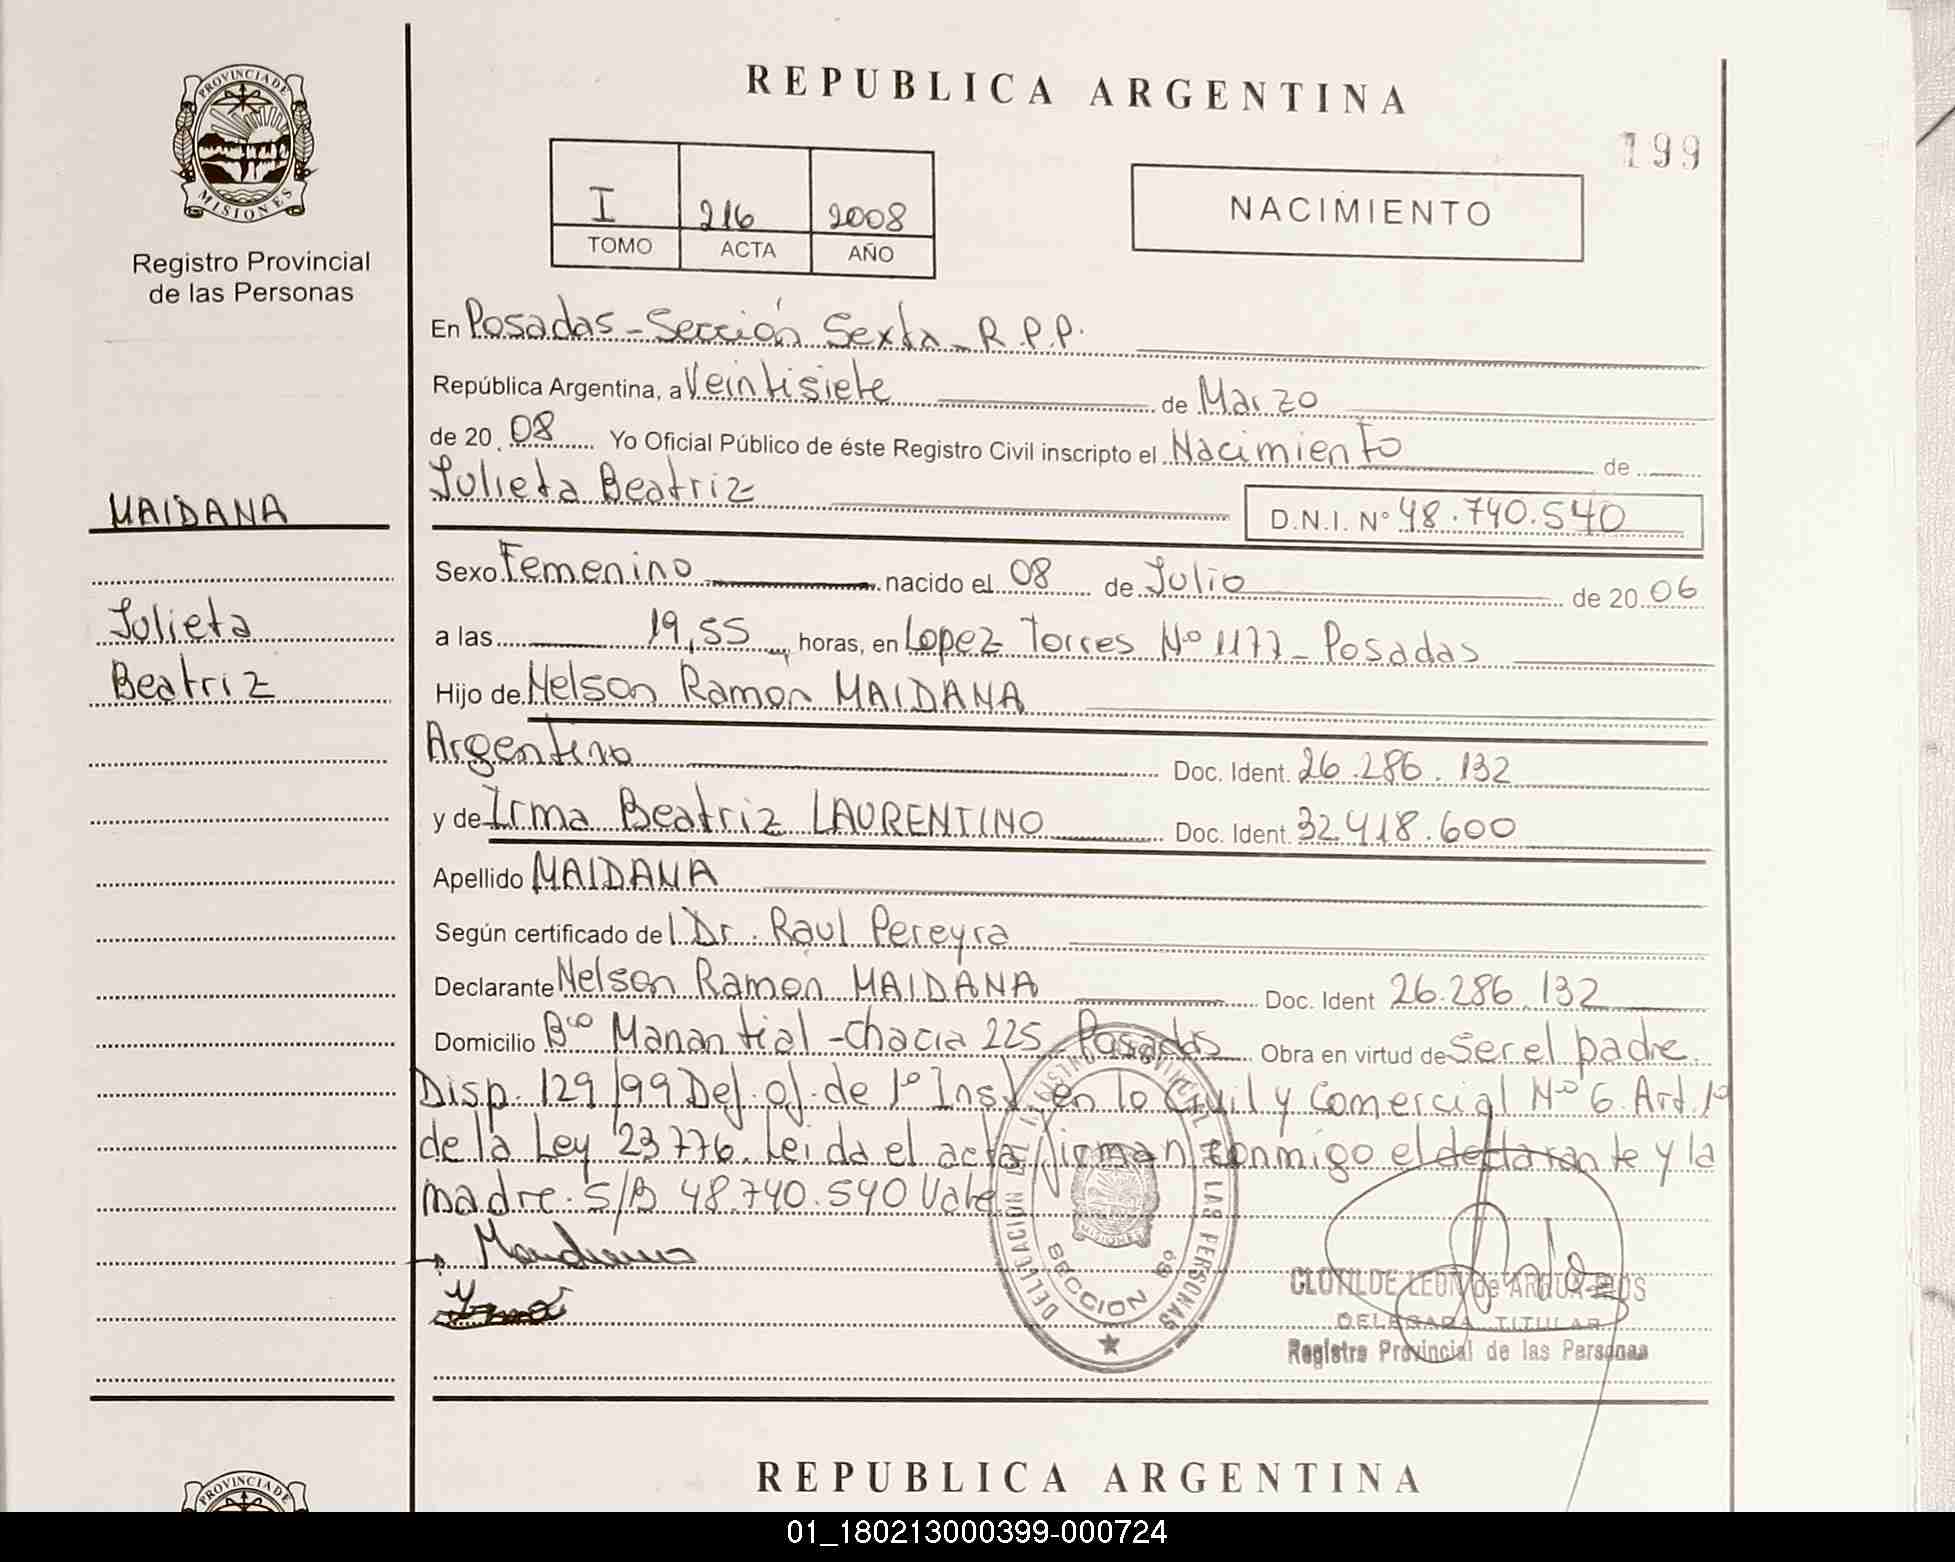 REPUBLICA ARGENTINA
199
PROVINCIA DE
MISIONES
Registro Provincial
de las Personas
I 216 2008
TOMO ACTA AÑO
NACIMIENTO
En Posadas - Sección Sexta - R.P.P.
República Argentina, a Veintisiete de Marzo
de 2008 Yo Oficial Público de éste Registro Civil inscripto el Nacimiento de
Julieta Beatriz D.N.I. N° 48.740.540
MAIDANA
Julieta
Beatriz
Sexo Femenino nacido el 08 de Julio de 2006
a las 19,55 horas, en Lopez Torres Nº 1177 - Posadas
Hijo de Nelson Ramón MAIDANA
Argentino Doc. Ident. 26.286.132
y de Irma Beatriz LAURENTINO Doc. Ident. 32.418.600
Apellido MAIDANA
Según certificado del Dr. Raul Pereyra
Declarante Nelson Ramon MAIDANA Doc. Ident 26.286.132
Domicilio Bco Manantial - Chacra 225 - Posadas Obra en virtud de Ser el padre.
Disp. 129/99 Def. of. de 1º Inst. en lo Civil y Comercial Nº 6. Art. 1º
de la Ley 23776. Leida el acta firman conmigo el declarante y la
madre. S/B 48.740.540 Vale
DELEGACION DEL REGISTRO PROVINCIAL DE LAS PERSONAS
MISIONES
SECCION 6º
CLOTILDE LEON de
DELEGADA TITULAR
Registro Provincial de las Personas
REPUBLICA ARGENTINA
PROVINCIA DE
01_180213000399-000724